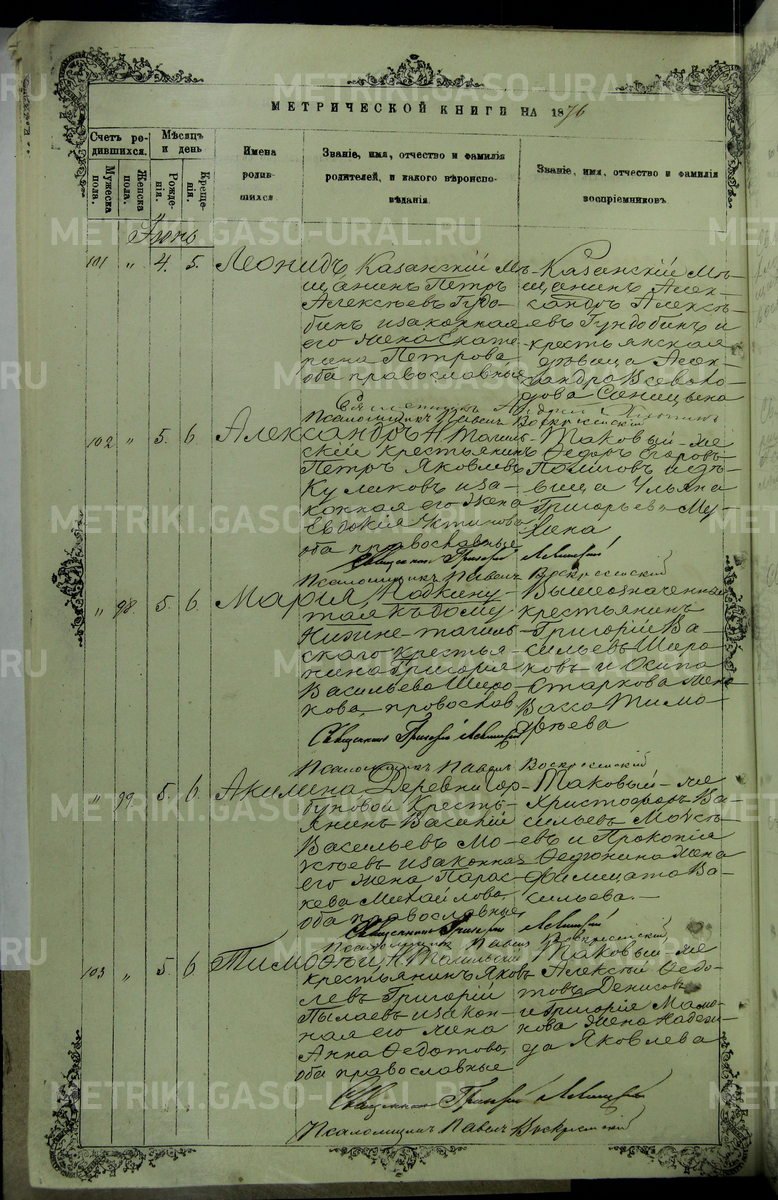 МЕТРИЧЕСКОЙ КНИГИ НА 1876
Счетъ ро-
дившихся.
Мужеска
пола.
Женска
пола.
Мѣсяцъ
и день
Рожде-
нія.
Креще-
нія.
Имена
родив-
шихся.
Званіе, имя, отчество и фамилія
родителей, и какого вѣроиспо-
вѣданія.
Званіе, имя, отчество и фамилія
воспріемниковъ.
Іюнь
101 " 4. 5. Леонидъ
Казанскій Мѣ-
щанинъ Петръ
Алексѣевъ Гундо-
бинъ изаконная
его жена Екате-
рина Петрова
оба православные
Казанскій Мѣ-
щанинъ Алек-
сандръ Алексѣ-
евъ Гундобинъ и
крестьянская
дѣвица Алек-
сандра Всеволо-
дова Синицына
Псаломщикъ Павелъ Воскресенскій
102 " 5. 6. Александръ
Н Тагиль-
скій крестьянинъ
Петръ Яковлевъ
Кулаковъ иза-
конная его жена
Евдокия
оба православные
Таковый-же
Федоръ Егоровъ
и дѣ-
вица Ульяна
Григорьева Му-
хина
Священникъ Григорій Левицкій
Псаломщикъ Павелъ Воскресенскій
" 98 5. 6. Мария
Подкину-
тая къ дому
Нижне тагиль-
скаго крестья-
нина Григория
Васильева Широ-
кова, провослав
Вышеозначенный
крестьянинъ
Григорій Ва-
сильевъ Широ-
ковъ и Осипа
Старкова жена
Васса Тимо-
фѣева
Священникъ Григорій Левицкій
Псаломщикъ Павелъ Воскресенскій
" 99 5. 6. Акилина
Деревни Гор-
буновой Кресть-
янинъ Василій
Васильевъ Мо-
исѣевъ изаконная
его жена Парас-
кева Михайлова
оба православные
Таковый-же
Христофоръ Ва-
сильевъ Моисѣ-
евъ и Прокопія
Федюнина жена
Филицата Ва-
сильева.
Священникъ Григорій Левицкій
Псаломщикъ Павелъ Воскресенскій
103 " 5. 6 Тимофей
Н Тагильскій
крестьянинъ Яков-
левъ Григорій
Пылаевъ изакон-
ная его жена
Анна Федотова
оба православные
Таковый же
Алексѣй Федо-
товъ Денисовъ
и Григорія Мамо-
нова жена Надеж-
да Яковлева
Священникъ Григорій Левицкій
Псаломщикъ Павелъ Воскресенскій
METRIKI.GASO-URAL.RU